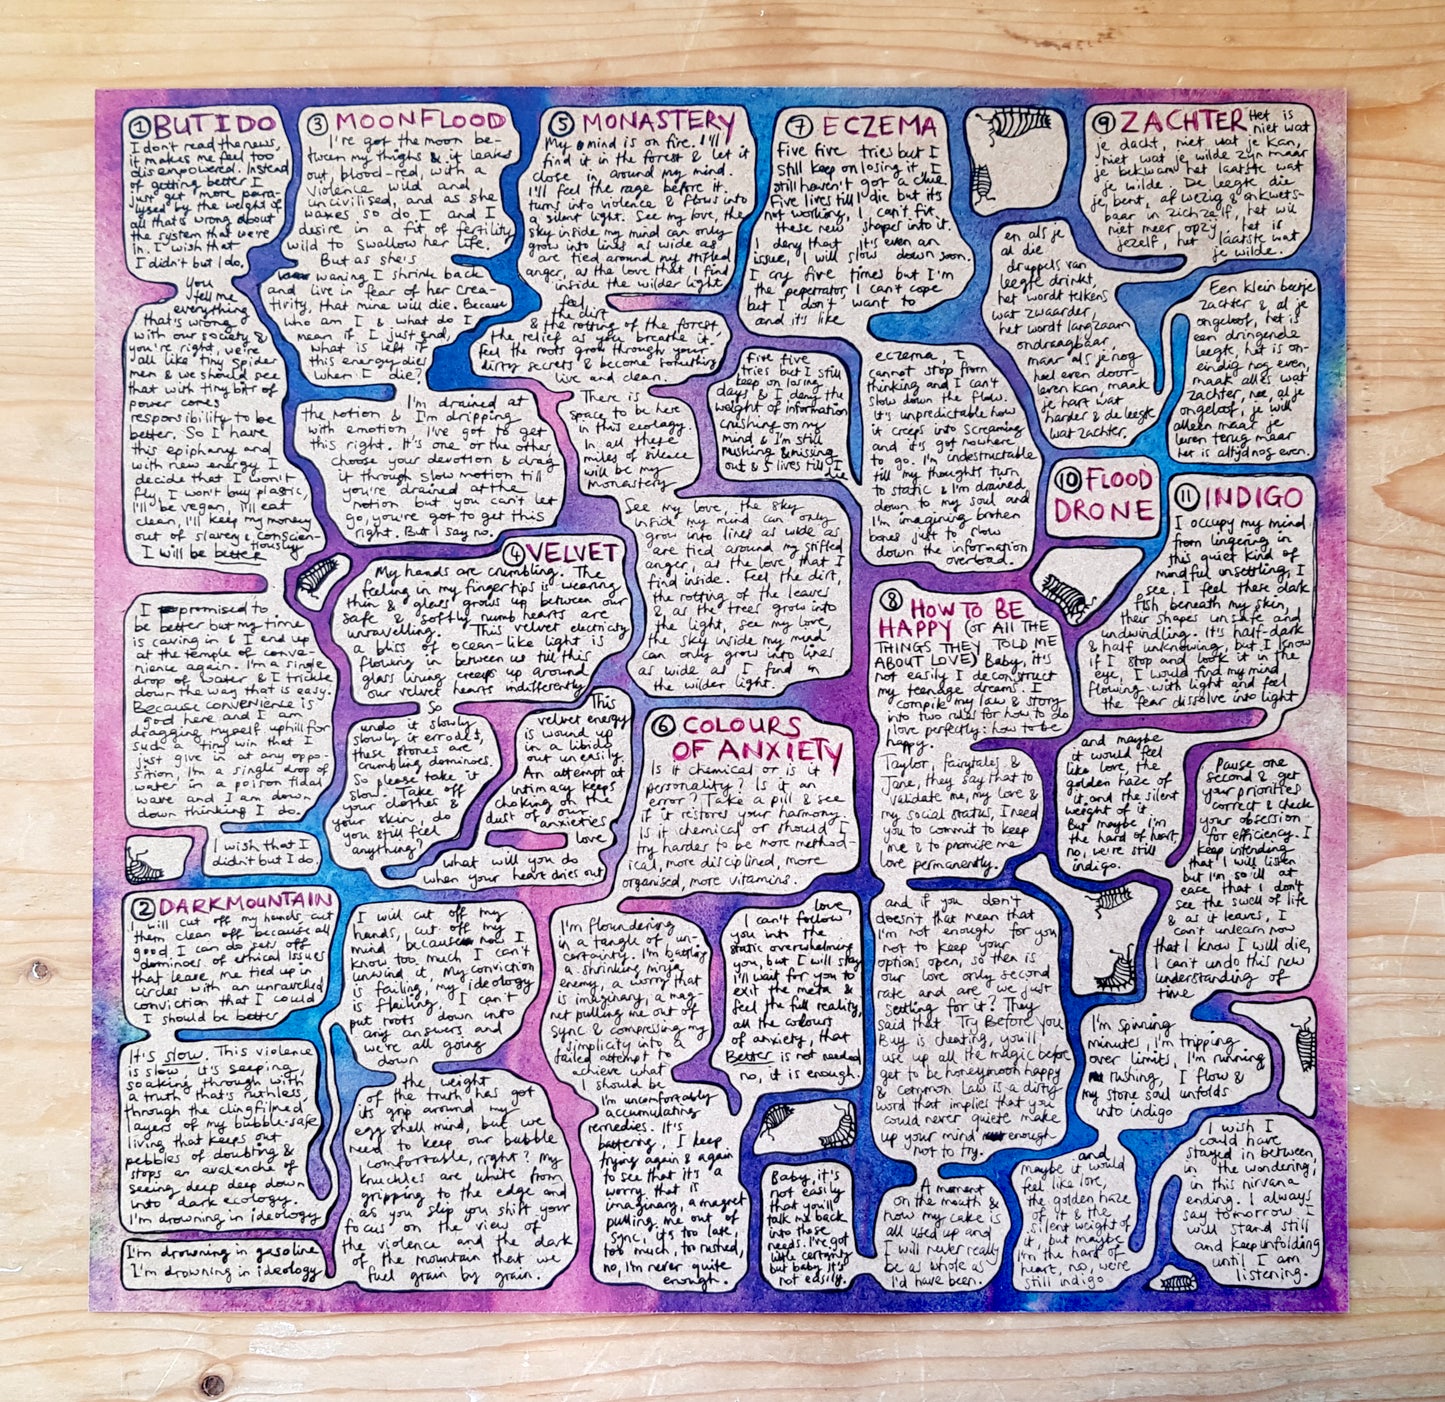 ① BUT I DO
I don't read the news,
it makes me feel too
disempowered. Instead
of getting better I
just get more para-
lysed by the weight of
all that's wrong about
the system that we're
in. I wish that
I didn't but I do.
You
tell me
everything
that's wrong
with our society &
you're right, we're
all like tiny spider
men & we should see
that with tiny bits of
power comes
responsibility to be
better. So I have
this epiphany and
with new energy I
decide that I won't
fly, I won't buy plastic,
I'll be vegan, I'll eat
clean, I'll keep my money
out of slavery & conscien-
tiously
I will be better
I promised to
be better but my time
is caving in & I end up
at the temple of conve-
nience again. I'm a single
drop of water & I trickle
down the way that is easy.
Because convenience is
god here and I am
dragging myself uphill for
such a tiny win that I
just give in at any oppo-
sition, I'm a single drop of
water in a poison tidal
wave and I am down
down thinking I do.
I wish that I
didn't but I do.
② DARK MOUNTAIN
I will cut off my hands, cut
them clean off because all
good I can do sets off
dominoes of ethical issues
that leave me tied up in
circles with an unravelled
conviction that I could
I should be better
It's slow. This violence
is slow, it's seeping,
soaking through with
a truth that's ruthless,
through the clingfilmed
layers of my bubble-safe
living that keeps out
pebbles of doubting &
stops an avalanche of
seeing deep deep down
into dark ecology.
I'm drowning in ideology
I'm drowning in gasoline
I'm drowning in ideology
I will cut off my
hands, cut off my
mind because now I
know too much I can't
unwind it. My conviction
is failing, my ideology
is flailing, I can't
put roots down into
any answers and
we're all going
down
the weight
of the truth has got
its grip around my
egg shell mind, but we
need to keep our bubble
comfortable, right? My
knuckles are white from
gripping to the edge and
as you slip you shift your
focus on the view of
the violence and the dark
of the mountain that we
fuel grain by grain.
③ MOONFLOOD
I've got the moon be-
tween my thighs & it leaks
out, blood-red, with a
violence wild and
uncivilised, and as she
waxes so do I and I
desire in a fit of fertility
wild to swallow her life.
But as she's
waning I shrink back
and live in fear of her crea-
tivity, that mine will die. Because
who am I & what do I
mean if I just end,
what is left if
this energy dies
when I die?
I'm drained at
the notion & I'm dripping
with emotion I've got to get
this right. It's one or the other
choose your devotion & drag
it through slow motion till
you're drained at the
notion but you can't let
go, you're got to get this
right. But I say no.
④ VELVET
My hands are crumbling. The
feeling in my fingertips is wearing
thin & glass grows up between our
safe & softly numb hearts are
unravelling. This velvet electricity
a bliss of ocean-like light is
flowing in between us till this
glass lining creeps up around
our velvet hearts indifferently
So
undo it slowly
slowly it erodes,
these stones are
crumbling dominoes.
So please take it
slow. Take off
your clothes &
your skin, do
you still feel
anything?
This
velvet energy
is wound up
in a libido
out uneasily.
An attempt at
intimacy keeps
choking on the
dust of our
anxieties
love
what will you do
when your heart dries out
⑤ MONASTERY
My mind is on fire. I'll
find it in the forest & let it
close in around my mind.
I'll feel the rage before it
turns into violence & flows into
a silent light. See my love, the
sky inside my mind can only
grow into lines as wide as
are tied around my stifled
anger, as the love that I find
inside the wilder light
feel
the dirt
& the rotting of the forest,
the relief as you breathe it.
feel the roots grow through your
dirty secrets & become something
live and clean.
There is
space to be here
in this ecology.
In all these
miles of silence
will be my
monastery
See my love, the sky
inside my mind can only
grow into lines as wide as
are tied around my stifled
anger, as the love that I
find inside. Feel the dirt,
the rotting of the leaves
& as the trees grow into
the light, see my love,
the sky inside my mind
can only grow into lines
as wide as I find in
the wilder light.
⑥ COLOURS
OF ANXIETY
Is it chemical or is it
personality? Is it an
error? Take a pill & see
if it restores your harmony
Is it chemical or should I
try harder to be more method-
ical, more disciplined, more
organised, more vitamins.
I'm floundering
in a tangle of un-
certainty. I'm battling
a shrinking ninja
enemy, a worry that
is imaginary, a mag-
net pulling me out of
sync & compressing my
simplicity into a
failed attempt to
achieve what
I should be
I'm uncomfortably
accumulating
remedies. It's
battering, I keep
trying again & again
to see that it's a
worry that is
imaginary, a magnet
pulling me out of
sync, it's too late,
too much, too rushed,
no, I'm never quite
enough.
love,
I can't follow
you into the
static overwhelming
you, but I will stay
I'll wait for you to
exit the meta &
feel the full reality,
all the colours
of anxiety, that
Better is not needed
no, it is enough.
⑦ ECZEMA
Five five tries but I
still keep on losing it, I
still haven't got a clue
Five lives till I die but it's
not working, I can't fit
these new shapes into it.
I deny that it's even an
issue, I will slow down soon.
I cry five times but I'm
the perpetrator, I can't cope
but I don't want to
and it's like
Five five
tries but I still
keep on losing
days & I deny the
weight of information
crushing on my
mind & I'm still
rushing & missing
out & 5 lives till I
die
eczema, I
cannot stop from
thinking and I can't
slow down the flow.
it's unpredictable how
it creeps into screaming
and it's got nowhere
to go. I'm indestructable
till my thoughts turn
to static & I'm drained
down to my soul and
I'm imagining broken
bones just to slow
down the information
overload.
⑧ HOW TO BE
HAPPY (OR ALL THE
THINGS THEY TOLD ME
ABOUT LOVE) Baby, it's
not easily I deconstruct
my teenage dreams. I
compile my law & story
into two rules for how to do
love perfectly: how to be
happy.
Taylor, fairytales &
Jane, they say that to
validate me, my love &
my social status, I need
you to commit to keep
me & to promise me
love permanently.
and if you don't
doesn't that mean that
I'm not enough for you
not to keep your
options open, so then is
our love only second
rate and are we just
settling for it? They
said that Try Before You
Buy is cheating, you'll
use up all the magic before
get to be honeymoon happy
& common law is a dirty
word that implies that you
could never quiete make
up your mind enough
not to try.
Baby, it's
not easily
that you'll
talk me back
into those
needs. I've got
little certainty
but baby it's
not easily.
A moment
on the mouth &
now my cake is
all used up and
I will never really
be as whole as
I'd have been.
⑨ ZACHTER
Het is
niet wat
je dacht, niet wat je kan,
niet wat je wilde zijn maar
je bekwam het laatste wat
je wilde. De leegte die
je bent, afwezig & onkwets-
baar in zichzelf, het wil
niet meer, op zij, het is
jezelf, het laatste wat
je wilde.
en als je
al die
druppels van
leegte drinkt,
het wordt telkens
wat zwaarder,
het wordt langzaam
ondraagbaar,
maar als je nog
heel even door-
leren kan, maak
je hart wat
harder & de leegte
wat zachter.
Een klein beetje
zachter & al je
ongeloof, het is
een dringende
leegte, het is on-
eindig nog even,
maak alles wat
zachter, nee, al je
ongeloof, je wil
alleen maar je
leven terug maar
het is altijd nog even.
⑩ FLOOD
DRONE
⑪ INDIGO
I occupy my mind
from lingering in
this quiet kind of
mindful unsettling, I
see, I feel these dark
fish beneath my skin,
their shapes unsafe and
undwindling. It's half-dark
& half unknowing, but I know
if I stop and look it in the
eye, I would find my mind
flowing with light and feel
the fear dissolve into light
and maybe
it would feel
like love, the
golden haze of
it and the silent
weight of it.
But maybe I'm
the hard of heart,
no, we're still
indigo.
Pause one
second & get
your priorities
correct & check
your obsession
for efficiency. I
keep intending
that I will listen
but I'm so ill at
ease that I don't
see the swell of life
& as it leaves, I
can't unlearn now
that I know I will die,
I can't undo this new
understanding of
time
I'm spinning
minutes, I'm tripping
over limits, I'm running
rushing, I flow &
my stone soul unfolds
into indigo
and
maybe it would
feel like love,
the golden haze
of it & the
silent weight of
it, but maybe
I'm the hard of
heart, no, we're
still indigo
I wish I
could have
stayed in between,
in the wondering,
in this nirvana
ending. I always
say tomorrow I
will stand still
and keep unfolding
until I am
listening.